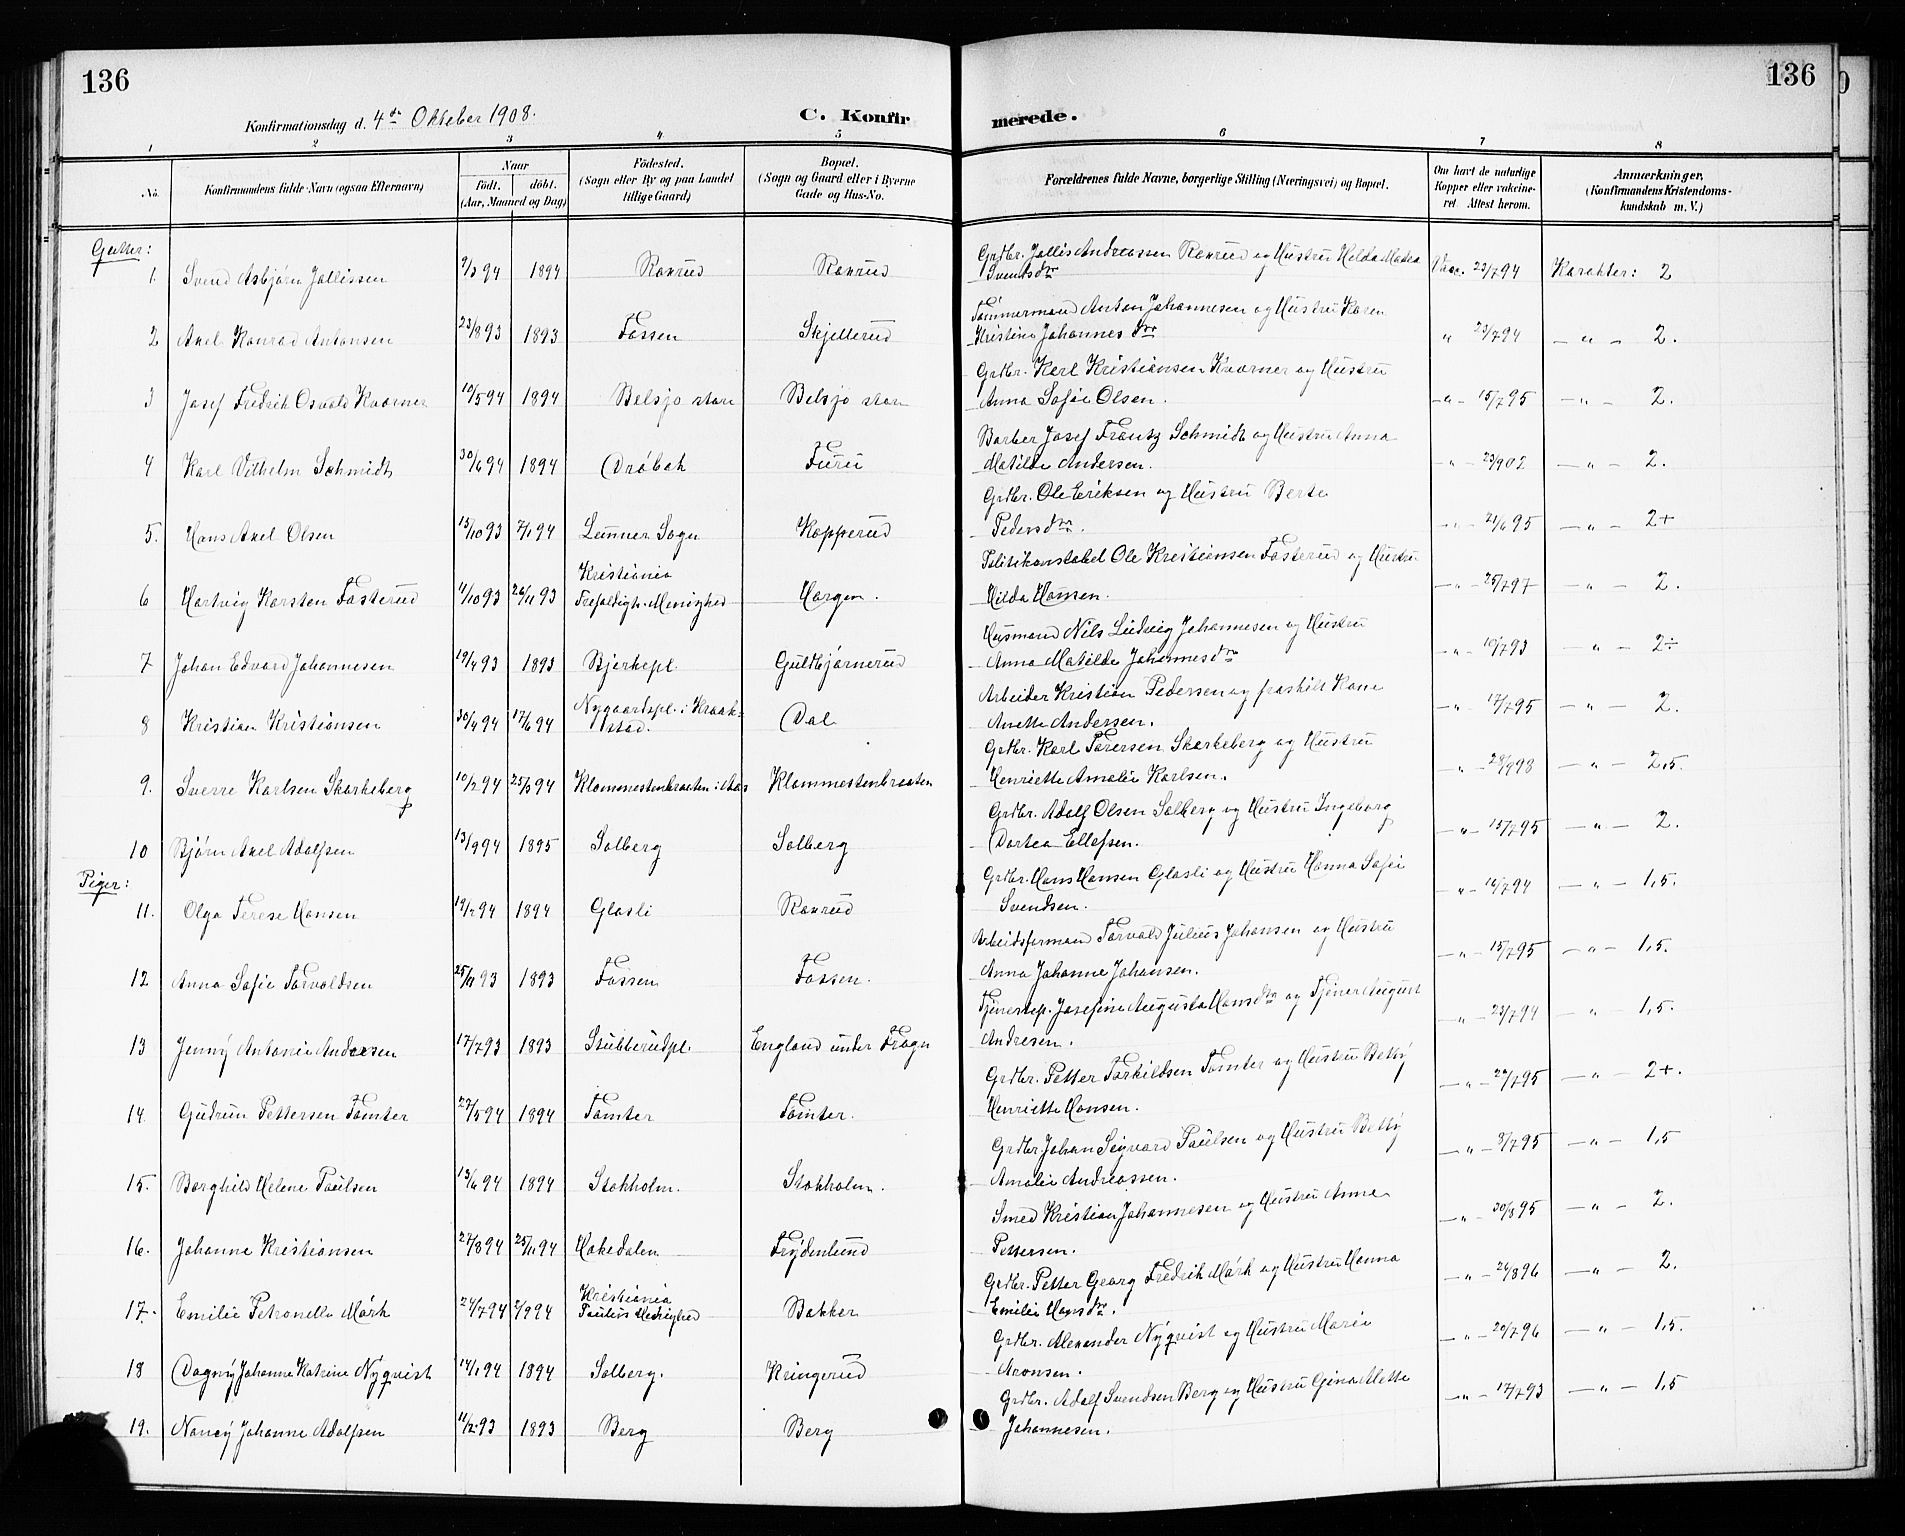 136
136
Konfirmationsdag d. 4de Oktober 1908.
C. Konfirmerede.
1 2 3 4 5 6 7 8
No.
Konfirmandens fulde Navn (ogsaa Efternavn)
Naar
født. døbt.
(Aar, Maaned og Dag)
Fødested.
(Sogn eller By og paa Landet
tillige Gaard)
Bopæl.
(Sogn og Gaard eller i Byerne
Gade og Hus-No.
Forældrenes fulde Navne, borgerlige Stilling (Næringsvei) og Bopæl.
Om havt de naturlige
Kopper eller vakcine-
ret. Attest herom.
Anmærkninger,
(Konfirmandens Kristendoms-
kundskab m. V.)
Gutter:
1. Svend Asbjørn Jallissen 7/3 94 1894 Ramrud Ramrud Grdbr. Jallis Andreassen Ramrud og Hustru Hilda Matea
Svensdtr Vacc. 23/7 94 Karakter: 2
2 Axel Konrad Antonsen 23/8 93 1893 Fossen Skjellerud Tømmermand Anton Johannesen og Hustru Karen
Kristine Johannesdtr " 23/7 94 — " — 2.
3 Josef Fredrik Osvald Kværner 10/5 94 1894 Belsjø store Belsjø store Grdbr. Karl Kristiansen Kværner og Hustru
Anna Sofie Olsen. — " — 15/7 95 — " — 2.
4 Karl Vilhelm Schmidt 30/6 94 1894 Drøbak Furu Barber Josef Frantz Schmidt og Hustru Anna
Matilde Andersen. — " — 23/9 02 — " — 2.
5. Hans Axel Olsen 15/10 93 7/1 94 Lunner Sogn Kopperud Grdbr. Ole Eriksen og Hustru Berte
Pedersdtr. — " — 21/6 95 — " — 2+
6 Hartvig Karsten Fosterud 11/10 93 26/11 93 Kristiania
Trefoldigh. Menighed Horgen. Politikonstabel Ole Kristiansen Fosterud og Hustru
Hilda Hansen. — " — 25/7 97 — " — 2.
7 Johan Edvard Johannesen 19/4 93 1893 Bjerkepl. Guldbjørnerud Husmand Nils Ludvig Johannesen og Hustru
Anna Matilde Johannesdtr — " — 10/7 93 — " — 2÷
8 Kristian Kristiansen 30/4 94 17/6 94 Nygaardspl. i Kraak-
stad. Dal Arbeider Kristian Pedersen og fraskilt Kone
Anette Andersen. — " — 17/7 95 — " — 2.
9. Sverre Karlsen Skarkeberg 10/2 94 25/3 94 Klommestenbraaten i Aas Klommestenbraaten Grdbr. Karl Torersen Skarkeberg og Hustru
Henriette Amalie Karlsen. " — 28/9 98 — " — 2,5.
10 Bjørn Axel Adolfsen 13/9 94 1895 Solberg Solberg Grdbr. Adolf Olsen Solberg og Hustru Ingeborg
Dortea Ellefsen. — " — 15/7 95 — " — 2.
Piger:
11. Olga Terese Hansen 19/2 94 1894 Glosli Ramrud Grdbr. Hans Hansen Glosli og Hustru Hanna Sofie
Svendsen. — " — 16/7 94 — " — 1,5.
12 Anna Sofie Torvaldsen 25/11 93 1893 Fossen Fossen. Arbeidsformand Torvald Julius Johansen og Hustru
Anna Johanne Johansen. — " — 15/7 95 — " — 1,5.
13 Jenny Antonie Andersen 17/7 93 1893 Stubberudpl. England under Frogn Tjenestep. Josefine Augusta Hansdtr og Tjener August
Andresen. — " — 23/7 94 — " — 1,5.
14. Gudrun Pettersen Tomter 27/5 94 1894 Tomter Tomter. Grdbr. Petter Torkildsen Tomter og Hustru Betty
Henriette Hansen. — " — 22/7 95 — " — 2+.
15. Borghild Helene Paulsen 13/6 94 1894 Stokholm. Stokholm. Grdbr Johan Sigvard Paulsen og Hustru Betty
Amalie Andreassen. — " — 8/7 95 — " — 1,5
16. Johanne Kristiansen 27/8 94 25/11 94 Hakedalen Frydenlund Smed Kristian Johannesen og Hustru Anne
Pettersen. — " — 30/8 95 — " — 2.
17. Emilie Petronelle Mørk 24/7 94 2/9 94 Kristiania
Paulus Menighed Bakker Grdbr. Petter Georg Fredrik Mørk og Hustru Hanna
Emilie Hansdtr. — " — 26/8 96 — " — 2.
18 Dagny Johanne Katrine Nyqvist 14/1 94 1894 Solberg. Kringerud Grdbr. Alexander Nyqvist og Hustru Marie
Aronsen. — " — 20/7 96 — " — 1,5.
19. Nancy Johanne Adolfsen 11/2 93 1893 Berg Berg Grdbr. Adolf Svendsen Berg og Hustru Gina Alette
Johannesen. — " — 17/7 93 — " — 1,5